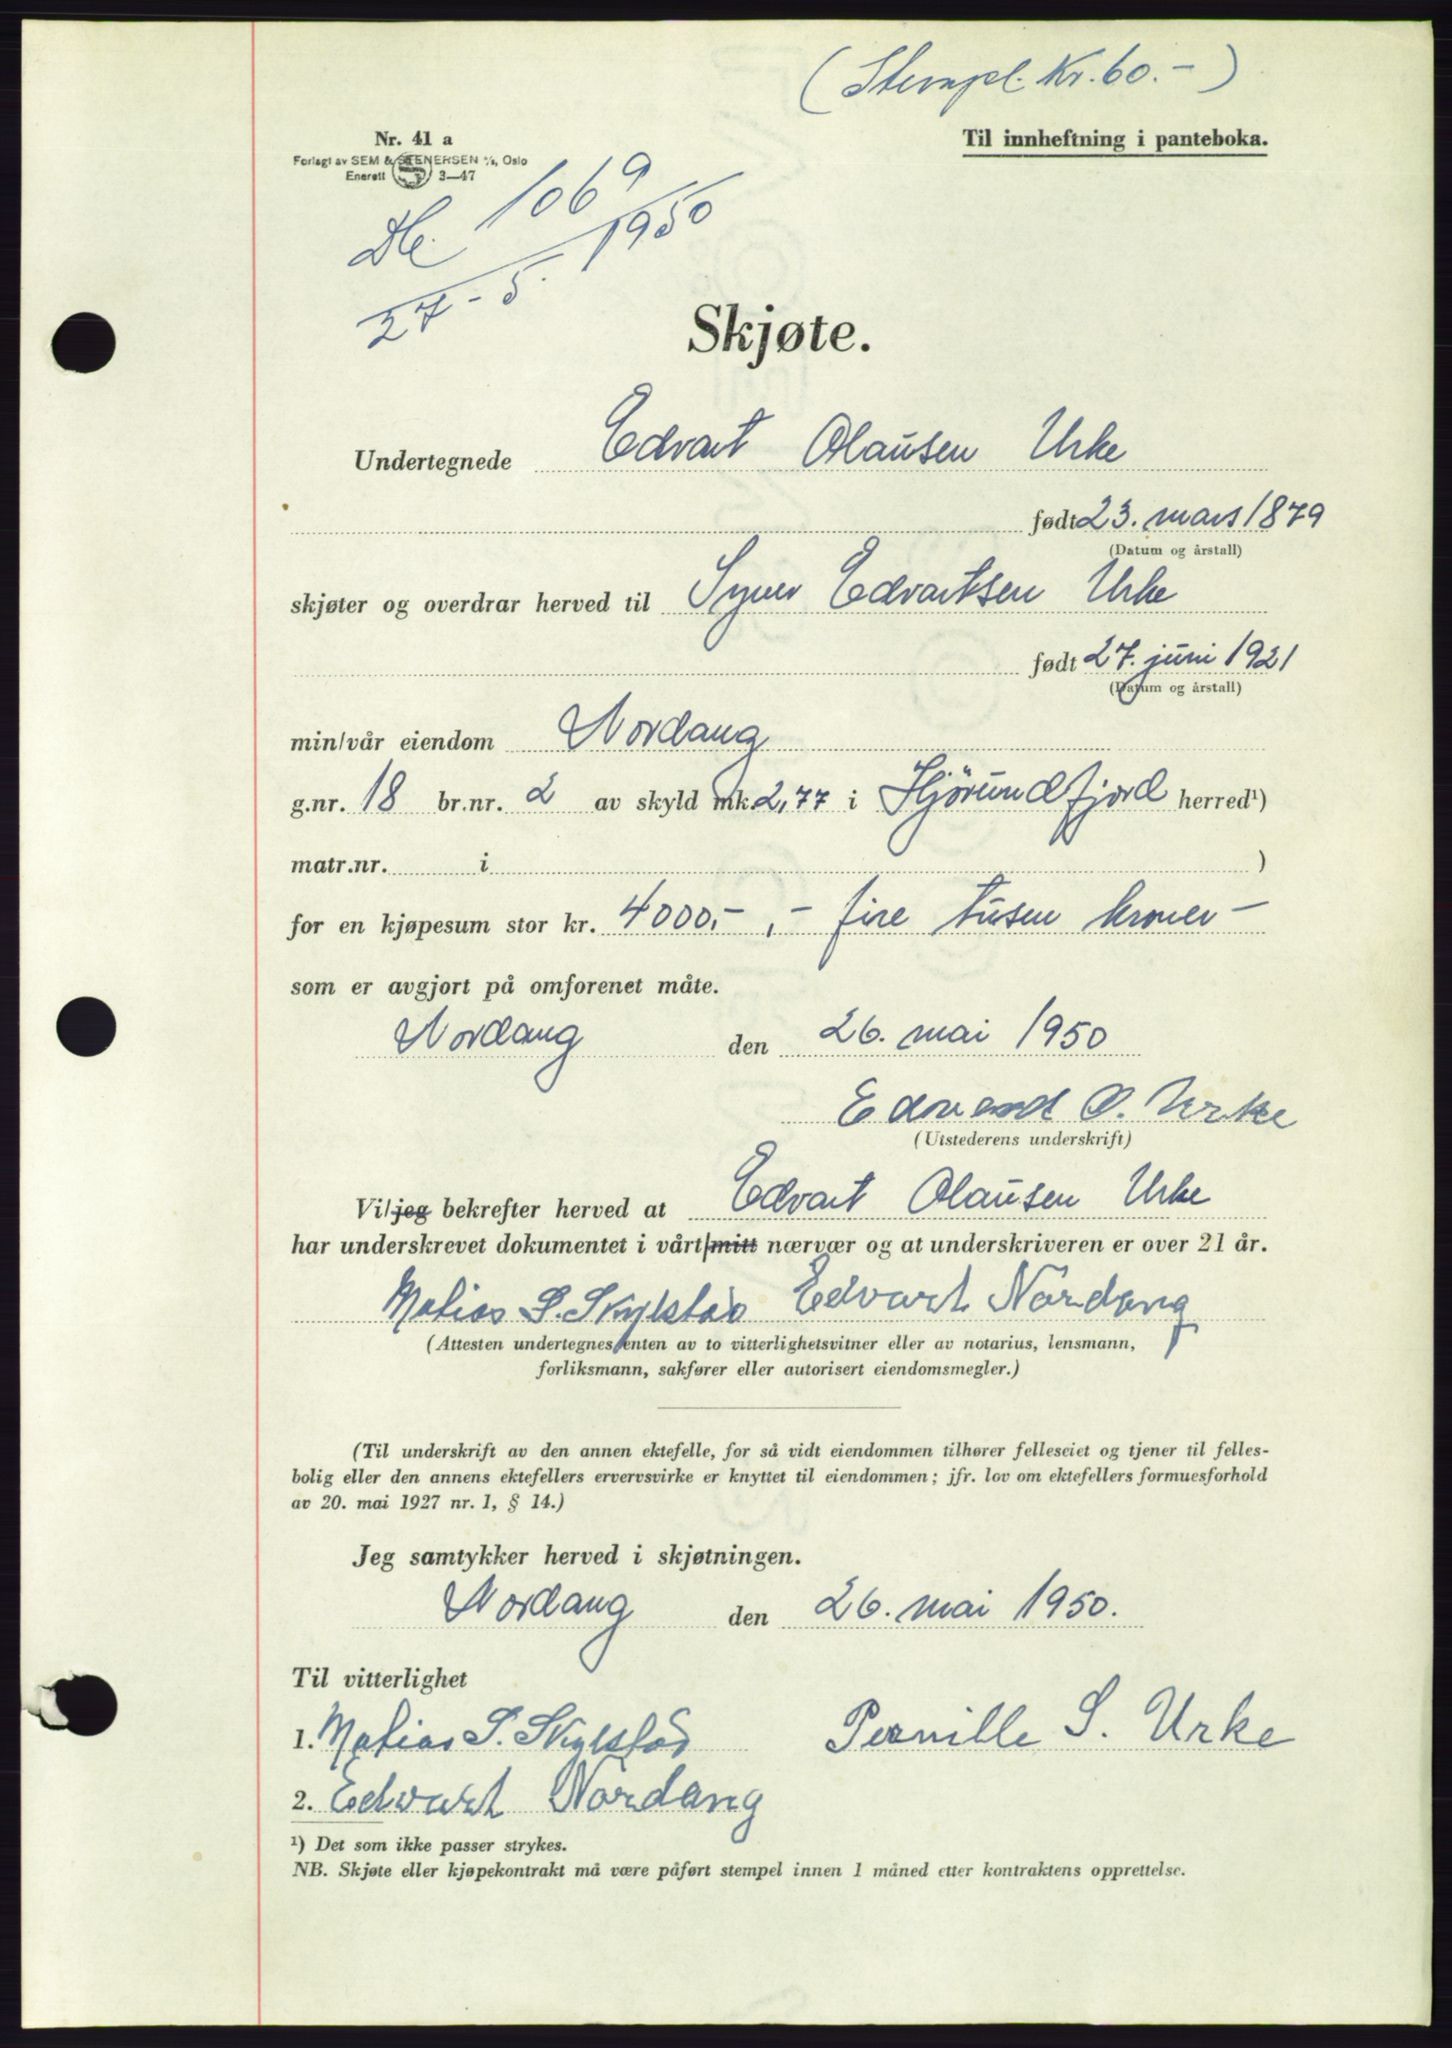 (Stempel. Kr. 60.-)
Nr. 41 a
Til innheftning i panteboka.
Forlagt av SEM & STENERSEN A/S, Oslo
Enerett 3—47
1069
27-5. 1950
Skjøte.
Undertegnede Edvart Olausen Urke
født 23. mars 1879
(Datum og årstall)
skjøter og overdrar herved til Syver Edvartsen Urke
født 27. juni 1921
(Datum og årstall)
min/vår eiendom Nordang
g.nr. 18 br.nr. 2 av skyld mk. 2,77 i Hjörundfjord herred¹)
matr.nr. i )
for en kjøpesum stor kr. 4000,- ,- fire tusen kroner -
som er avgjort på omforenet måte.
Nordang den 26. mai 1950
Edvard O. Urke
(Utstederens underskrift)
Vi/jeg bekrefter herved at Edvart Olausen Urke
har underskrevet dokumentet i vårt/mitt nærvær og at underskriveren er over 21 år.
Matias S. Skylstad Edvart Nordang
(Attesten undertegnes enten av to vitterlighetsvitner eller av notarius, lensmann,
forliksmann, sakfører eller autorisert eiendomsmegler.)
(Til underskrift av den annen ektefelle, for så vidt eiendommen tilhører felleseiet og tjener til felles-
bolig eller den annens ektefellers ervervsvirke er knyttet til eiendommen; jfr. lov om ektefellers formuesforhold
av 20. mai 1927 nr. 1, § 14.)
Jeg samtykker herved i skjøtningen.
Nordang den 26. mai 1950.
Til vitterlighet
1. Matias S. Skylstad Pernille S. Urke
2. Edvart Nordang
¹) Det som ikke passer strykes.
NB. Skjøte eller kjøpekontrakt må være påført stempel innen 1 måned etter kontraktens opprettelse.